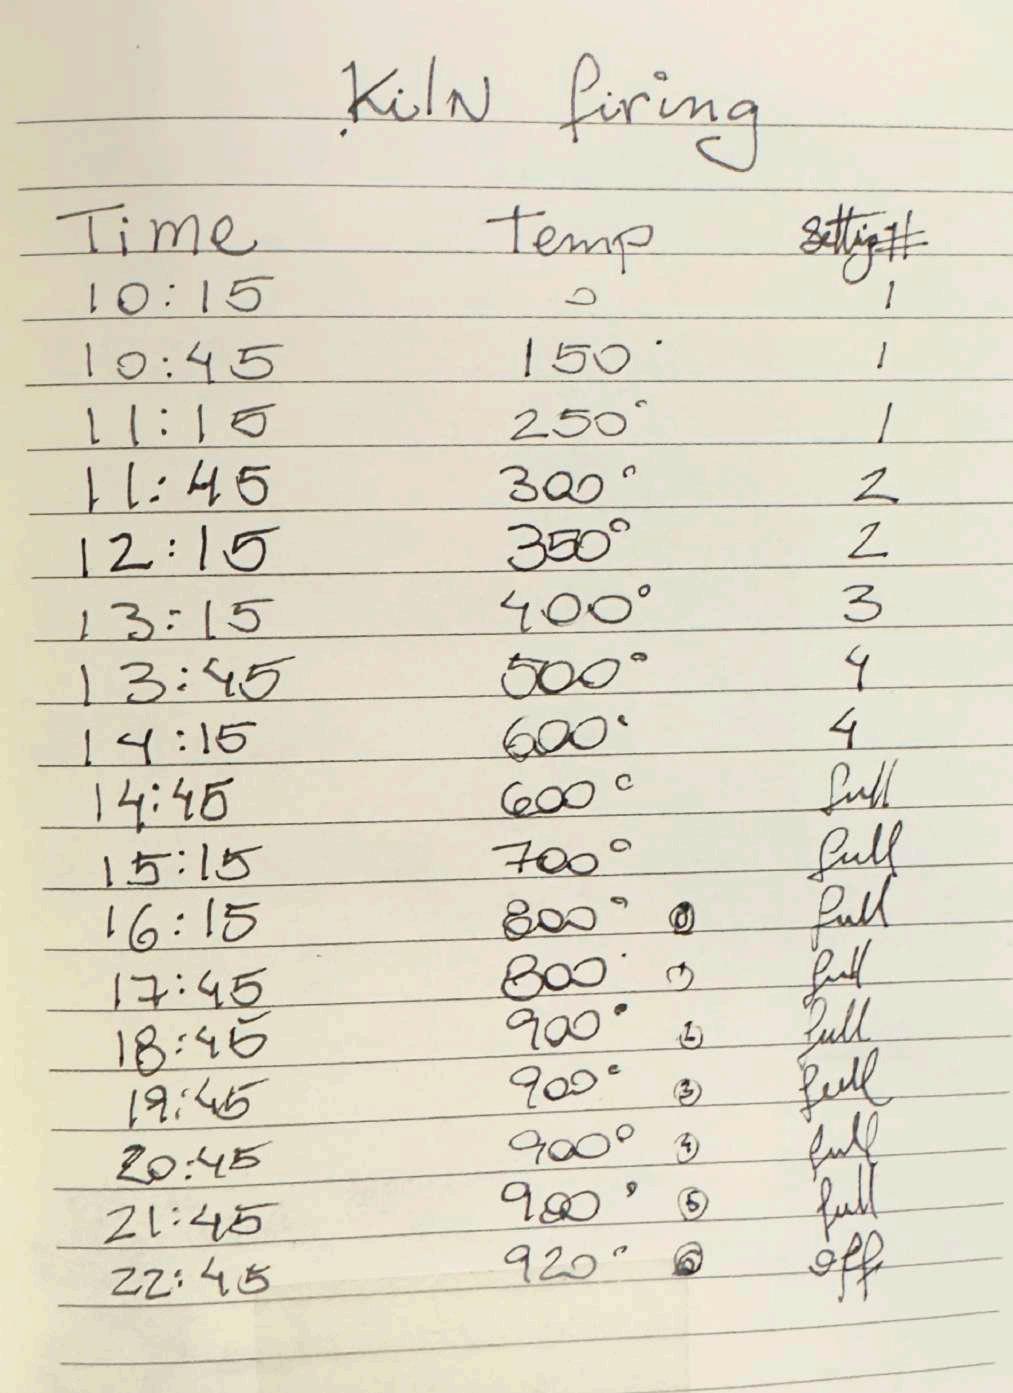 Kiln firing
Time Temp Settig#
10:15 0 1
10:45 150° 1
11:15 250° 1
11:45 300° 2
12:15 350° 2
13:15 400° 3
13:45 500° 4
14:15 600° 4
14:45 600° full
15:15 700° full
16:15 800° full
17:45 800° ① full
18:45 900° ② full
19:45 900° ③ full
20:45 900° ④ full
21:45 900° ⑤ full
22:45 920° ⑥ off